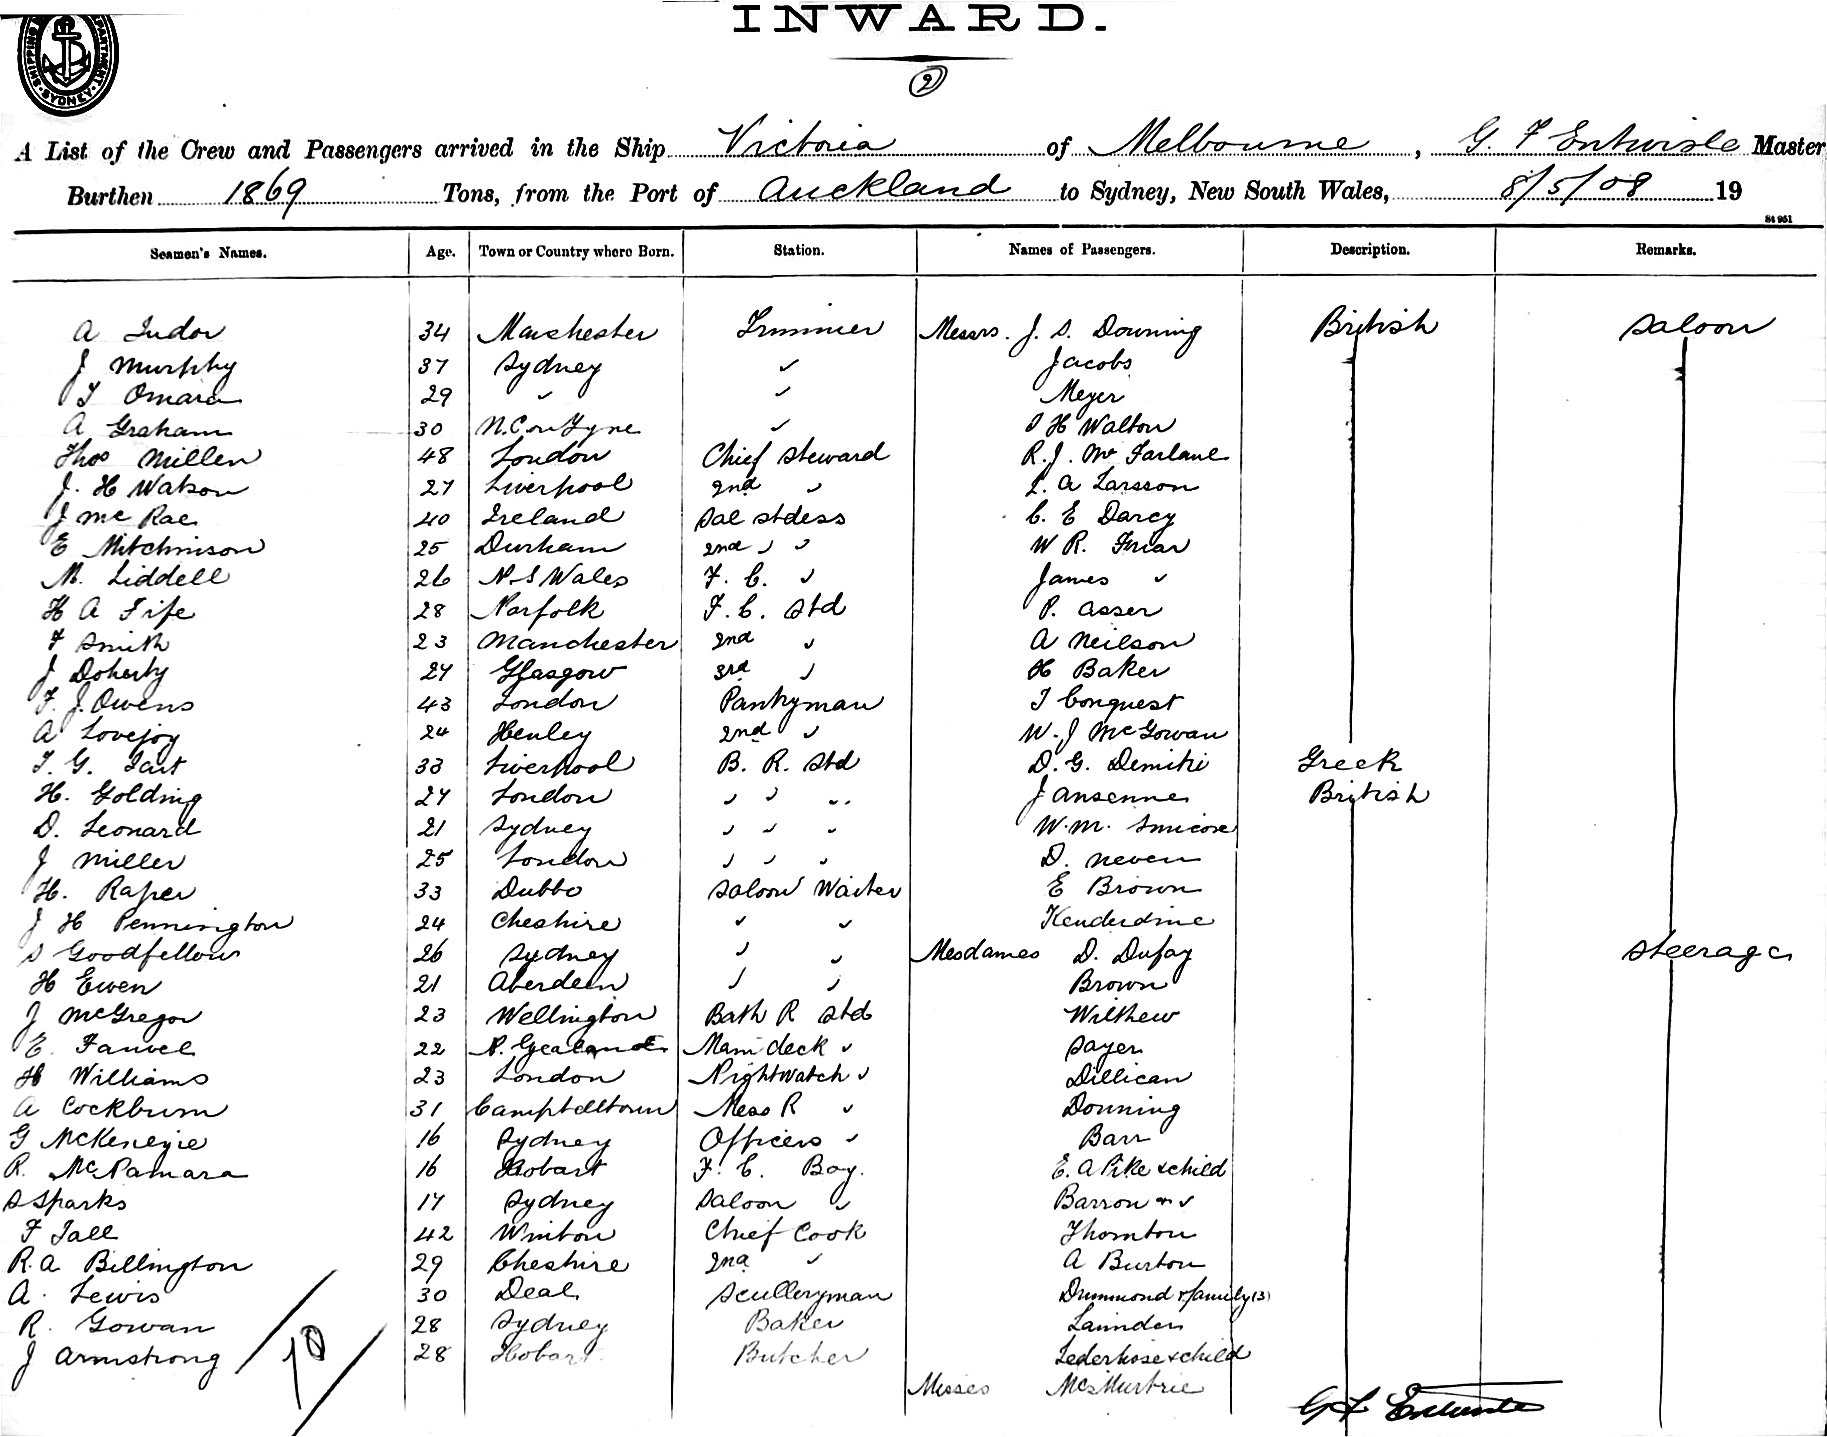 INWARD.
2
SHIPPING DEPARTMENT. SYDNEY.
A List of the Crew and Passengers arrived in the Ship Victoria of Melbourne, G. F Entwisle Master
Burthen 1869 Tons, from the Port of Auckland to Sydney, New South Wales, 8/5/08 19
St 951
Seamen's Names. Age. Town or Country where Born. Station. Names of Passengers. Description. Remarks.
A Tudor 34 Manchester Trimmer Messrs. J. S. Downing British Saloon
J Murphy 37 Sydney " Jacobs
T Omara 29 " " Meyer
A Graham 30 N.C on Tyne " J H Walton
Thos Millen 48 London Chief Steward R. J. Mc Farlane
J. H Watson 27 Liverpool 2nd " L. A Larsson
J Mc Rae 40 Ireland Sal Stdess C. E Darcy
E Mitchinson 25 Durham 2nd " " W R. Friar
M. Liddell 26 N.S Wales F. C. " James "
H A Fife 28 Norfolk F. C. Std P. Asser
F Smith 23 Manchester 2nd " A Neilson
J Doherty 27 Glasgow 3rd " H Baker
F. J. Owens 43 London Pantryman T Conquest
A Lovejoy 24 Henley 2nd " W. J McGowan
T. G. Tait 33 Liverpool B. R. Std D. G. Demitri Greek
H. Golding 27 London " " " J Ansenne British
D. Leonard 21 Sydney " " " W. M.
J Miller 25 London " " " D. Neven
H. Raper 33 Dubbo Saloon Waiter E Brown
J H Pennington 24 Cheshire " " Kenderdine
S Goodfellow 26 Sydney " " Mesdames D. Dufay Steerage
H Ewen 21 Aberdeen " " Brown
J McGregor 23 Wellington Bath R Std Wilthew
E. Fauvel 22 N. Zealand Main deck " Sayer
H Williams 23 London Nightwatch " Dillican
A Cockburn 31 Campbelltown Mess R " Downing
G McKenzie 16 Sydney Officers " Barr
R. McNamara 16 Hobart F. C. Boy. E. A Pike & child
S Sparks 17 Sydney Saloon " Barron " "
F Tall 42 Winton Chief Cook Thornton
R. A Billington 29 Cheshire 2nd " A Burton
A. Lewis 30 Deal Sculleryman Drummond & family (3)
R. Gowan 28 Sydney Baker Launder
J Armstrong 28 Hobart Butcher Lederhose & child
Misses McMurtrie
G F Entwisle